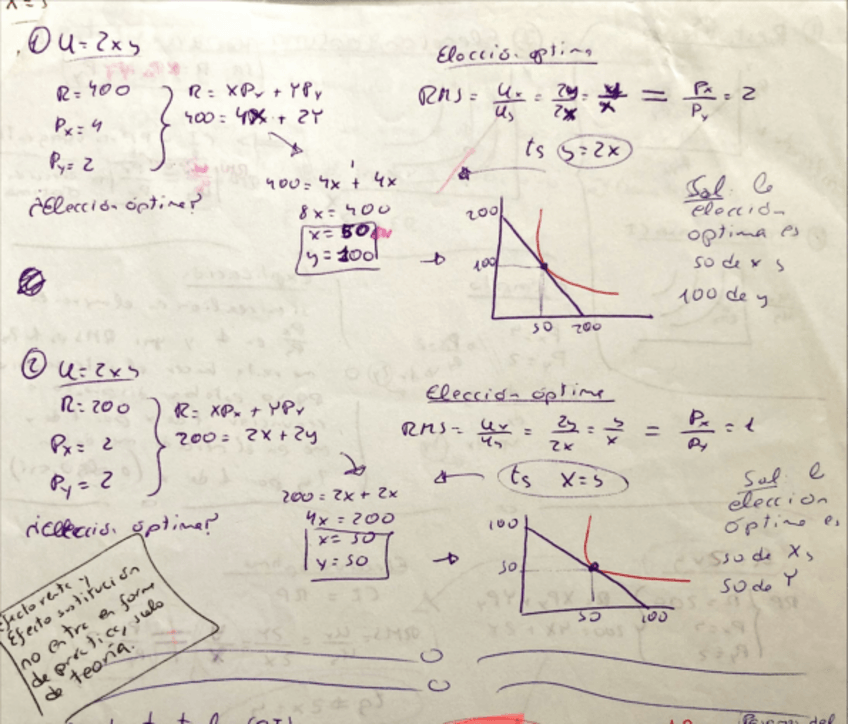 ① U = 2xy
R = 400
Px = 4
Py = 2
R = XPx + YPy
400 = 4X + 2Y
400 = 4x + 4x
8x = 400
x = 50
y = 100
¿Elección óptima?
Elección optima
RMS = Ux/Uy = 2y/2x = y/x = Px/Py = 2
ts y = 2x
200
100
50 200
Sol. la
elección
optima es
50 de x y
100 de y
② U = 2xy
R = 200
Px = 2
Py = 2
R = XPx + YPy
200 = 2x + 2y
200 = 2x + 2x
4x = 200
x = 50
y = 50
¿Elección óptima?
Elección óptima
RMS = Ux/Uy = 2y/2x = y/x = Px/Py = 1
ts x = y
100
50
50 100
Sol. la
elección
óptima es
50 de X y
50 de Y
Efecto renta y
Efecto sustitución
no entra en forma
de práctica, solo
de teoría.